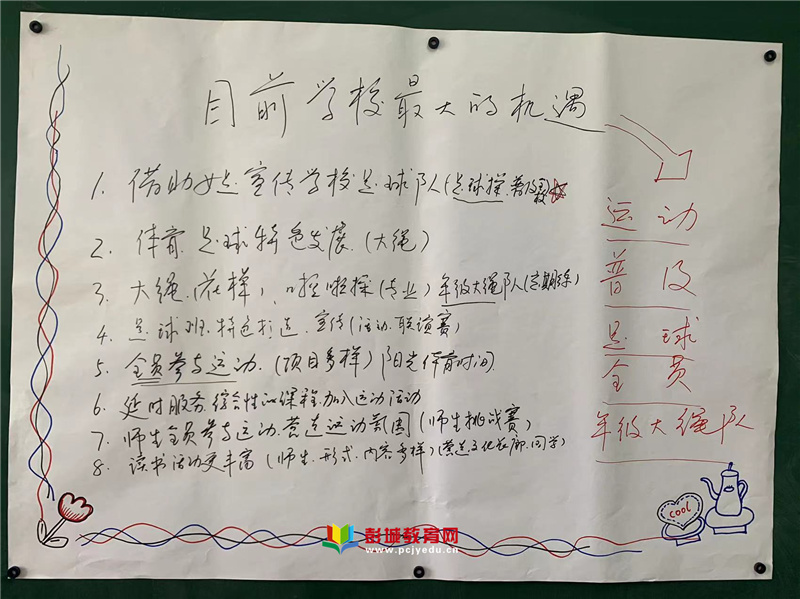 目前学校最大的机遇
1. 借助女足宣传学校足球队(足球操.普及
2. 体育.足球特色发展.(大绳)
3. 大绳.(花样),啦啦操(专业)年级大绳队(定期练)
4. 足球班.特色打造.宣传(活动.联谊赛)
5. 全员参与运动.(项目多样)阳光体育时间
6. 延时服务.综合性的课程.加入运动活动
7. 师生全员参与运动.营造运动氛围(师生挑战赛)
8. 读书活动更丰富(师生.形式.内容多样)(营造文化长廊.同学)
运动
普及
足球
全员
年级大绳队
cool
彭城教育网
www.pcjyedu.cn